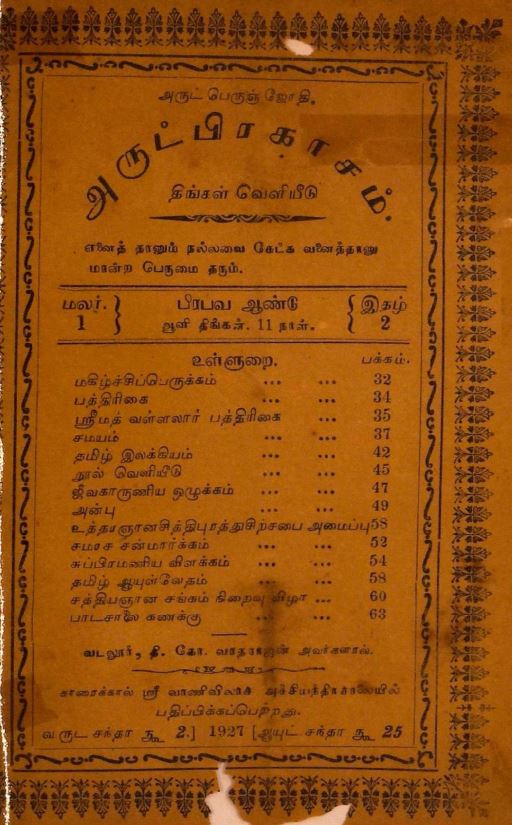 அருட் பெருஞ் ஜோதி.
அருட்பிரகாசம்.
திங்கள் வெளியீடு
எனைத் தானும் நல்லவை கேட்க வனைத்தானு
மான்ற பெருமை தரும்.
மலர். 1 } பிரபவ ஆண்டு { இதழ் 2
ஆனி திங்கள். 11 நாள்.
உள்ளுறை. பக்கம்.
மகிழ்ச்சிப்பெருக்கம் ... ... 32
பத்திரிகை ... ... 34
ஸ்ரீமத் வள்ளலார் பத்திரிகை ... 35
சமயம் ... ... 37
தமிழ் இலக்கியம் ... ... 42
நூல் வெளியீடு ... ... 45
ஜீவகாருணிய ஒழுக்கம் ... ... 47
அன்பு ... ... 49
உத்தரஞானசித்திபுரத்துசிற்சபை அமைப்பு58
சமரச சன்மார்க்கம் ... ... 52
சுப்பிரமணிய விளக்கம் ... ... 54
தமிழ் ஆயுள்வேதம் ... ... 58
சத்தியஞான சங்கம் நிறைவு விழா ... 60
பாடசாலை கணக்கு ... ... 63
வடலூர், தி. கோ. வரதராஜன் அவர்களால்.
காரைக்கால் ஸ்ரீ வாணிவிலாச அச்சியந்திரசாலையில்
பதிப்பிக்கப்பெற்றது.
வருட சந்தா ரூ 2.] 1927 [ஆயுட் சந்தா ரூ 25